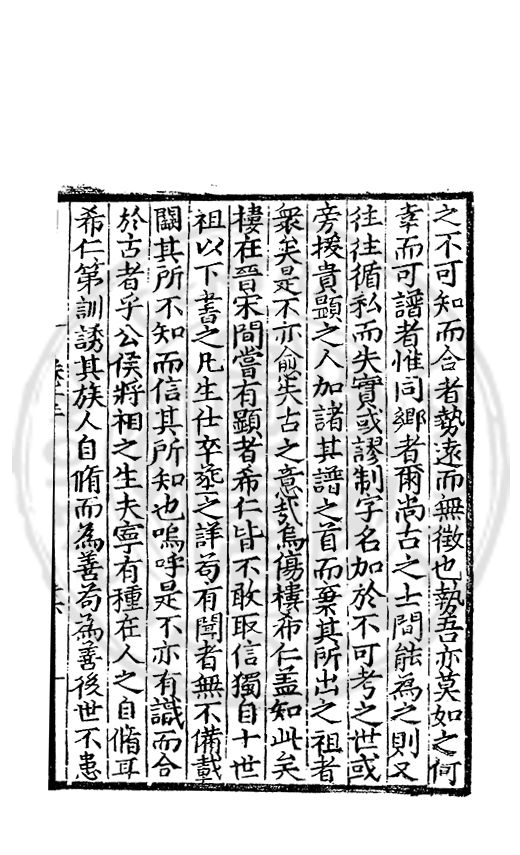 之不可知而合者勢遠而無徴也埶吾亦莫如之何
幸而可譜者惟同鄉者爾尚古之士間能為之則又
往往循私而失實或謬制字名加於不可考之世或
旁援貴顯之人加諸其譜之首而棄其所出之祖者
衆矣是不亦愈失古之意㢤烏傷樓希仁盖知此矣
樓在晉宋間嘗有顯者希仁皆不敢取信獨自十世
祖以下書之凡生仕卒塟之詳苟有聞者無不備載
闕其所不知而信其所知也嗚呼是不亦有識而合
於古者乎公侯將相之生夫寧有種在人之自脩耳
希仁第訓誘其族人自脩而為善茍為善後世不患